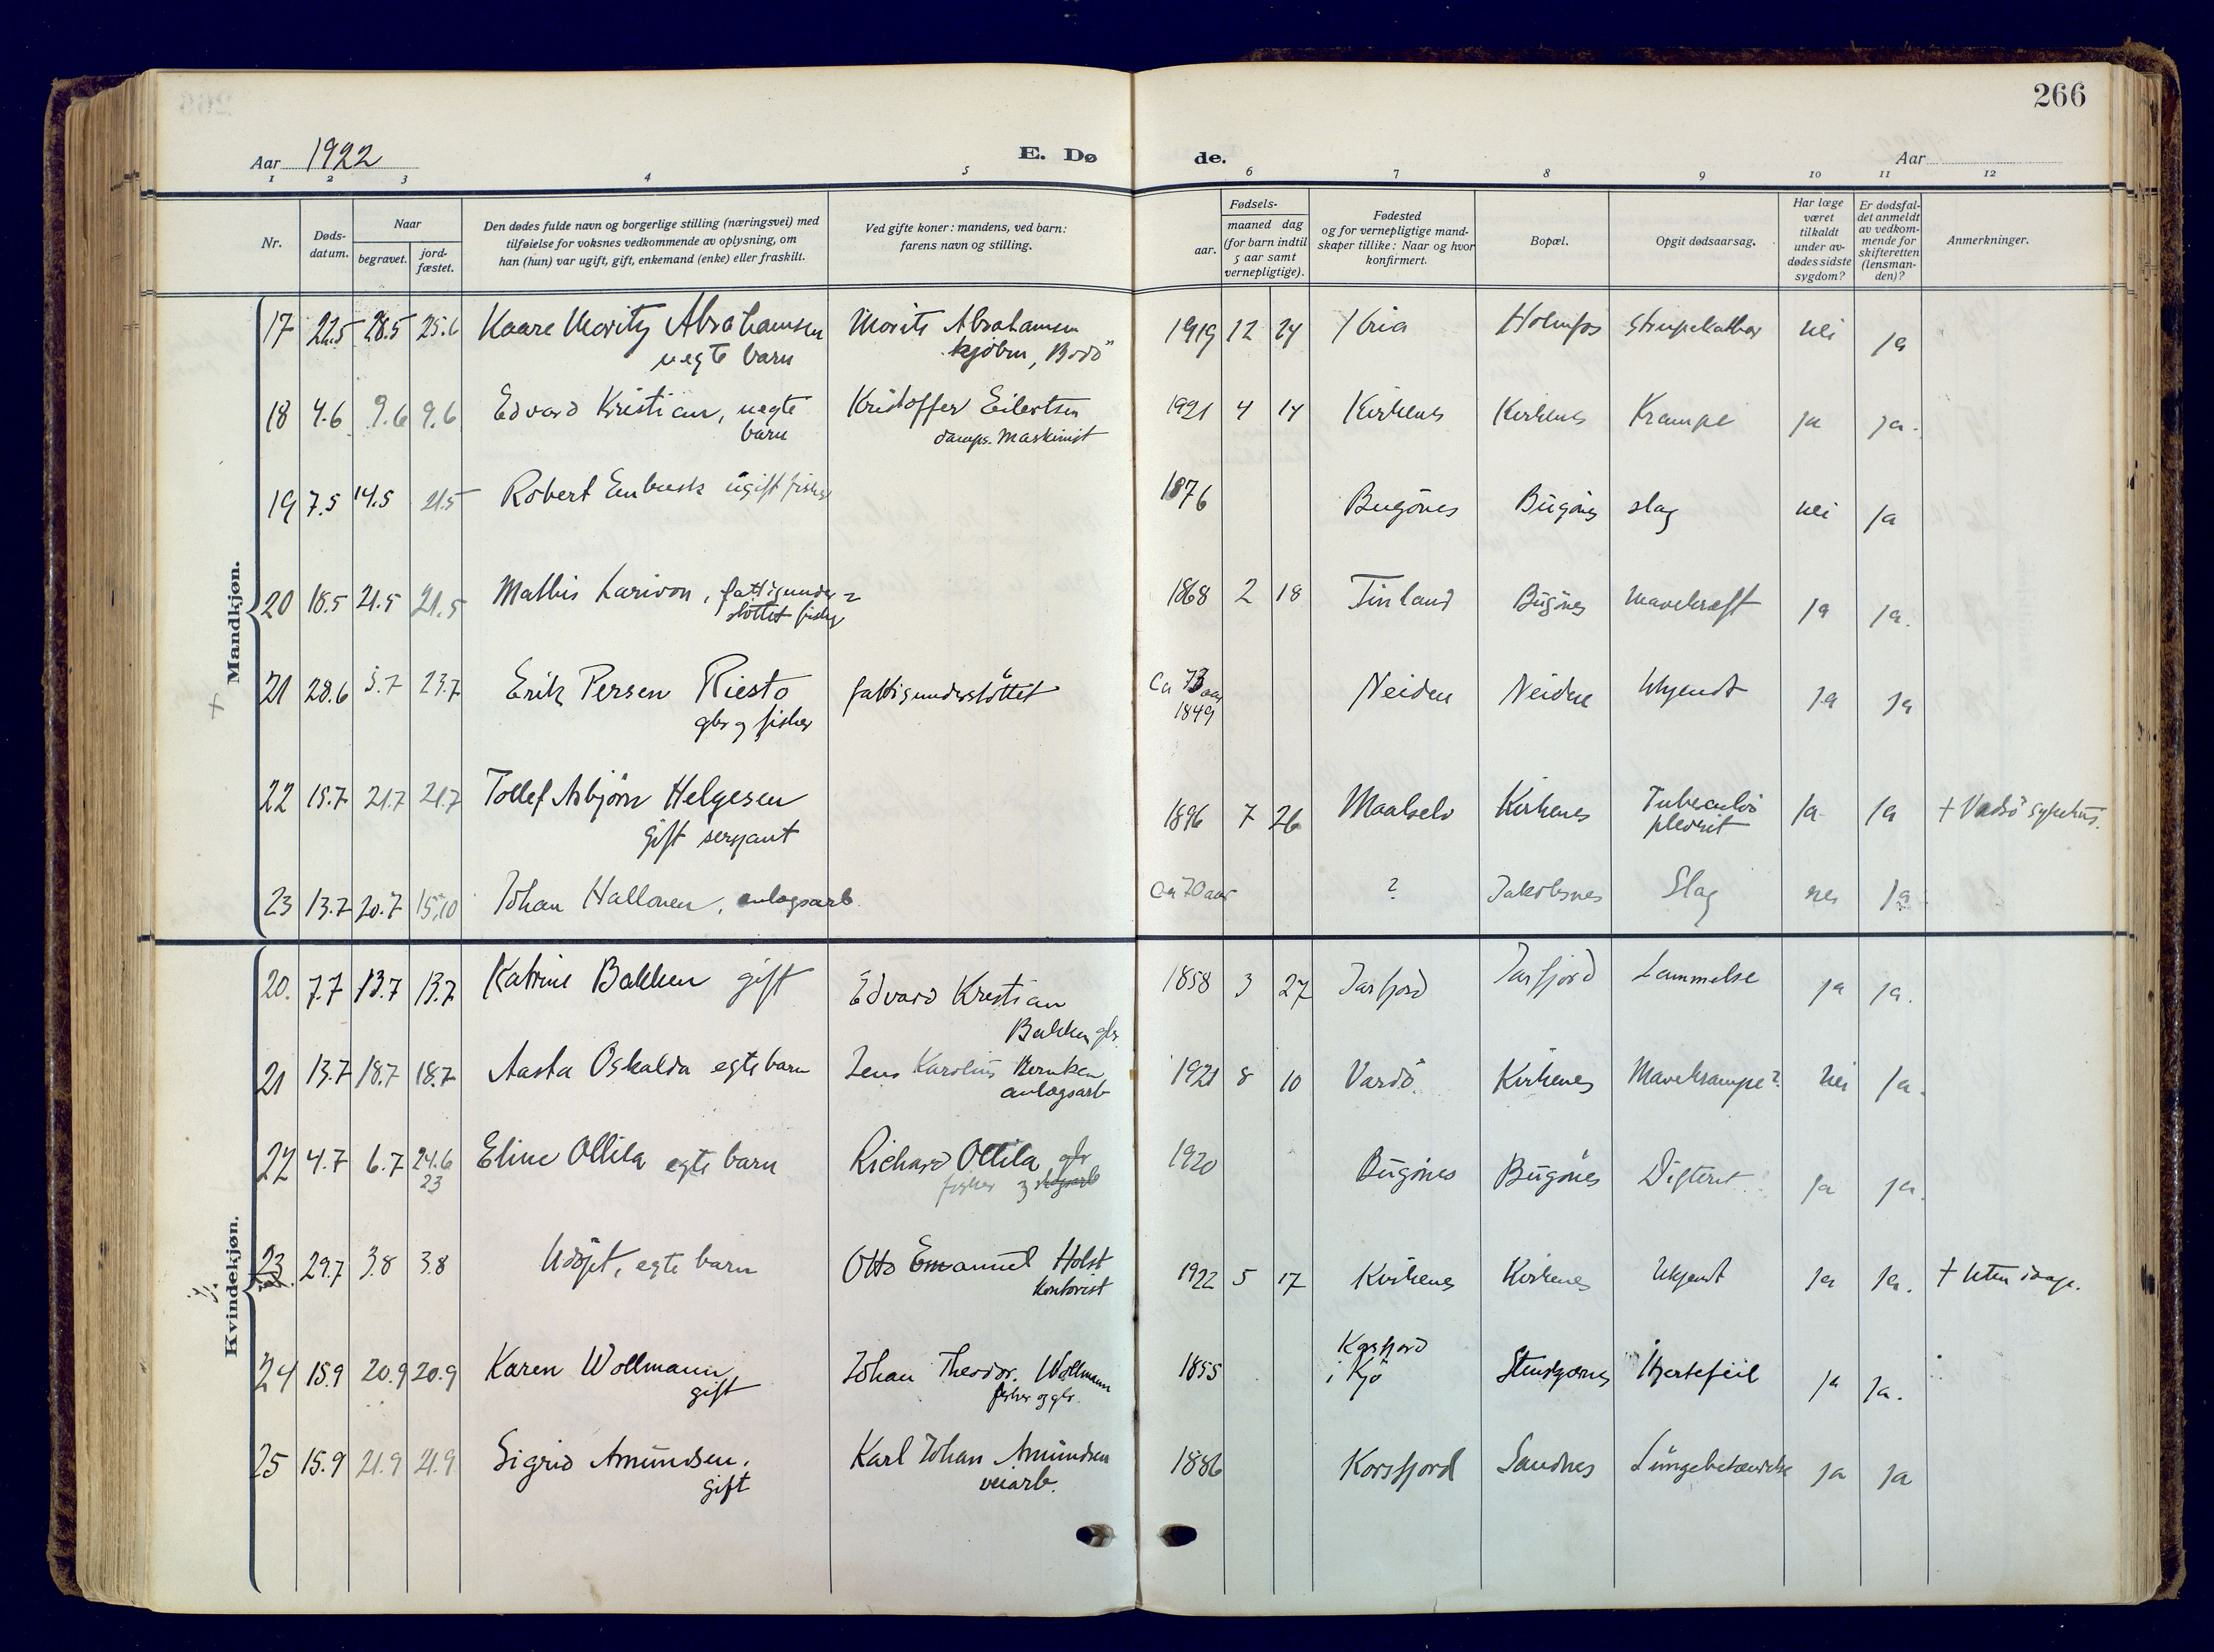 266
Aar 1922
E. Dø de.
Aar
1 2 3 4 5 6 7 8 9 10 11 12
Nr.
Døds-
datum.
Naar
begravet.
jord-
fæstet.
Den dødes fulde navn og borgerlige stilling (næringsvei) med
tilføielse for voksnes vedkommende av oplysning, om
han (hun) var ugift, gift, enkemand (enke) eller fraskilt.
Ved gifte koner: mandens, ved barn:
farens navn og stilling.
Fødsels-
aar.
maaned dag
(for barn indtil
5 aar samt
vernepligtige).
Fødested
og for vernepligtige mand-
skaper tillike: Naar og hvor
konfirmert.
Bopæl.
Opgit dødsaarsag.
Har læge
været
tilkaldt
under av-
dødes sidste
sygdom?
Er dødsfal-
det anmeldt
av vedkom-
mende for
skifteretten
(lensman-
den)?
Anmerkninger.
Mandkjøn.
17 22.5 28.5 25.6 Kaare Moritz Abrahamsen Morits Abrahamsen 1919 12 24 Holmfos strupekathar nei ja
uegte barn kjøbm, Bodö
18 4.6 9.6 9.6 Edvard Kristian, uegte Kristoffer Eilertsen 1921 4 14 Kirkenes Kirkenes Krampe ja ja.
barn damps. maskinist
19 7.5 14.5 21.5 Robert Enbusk ugift fisker 1876 Bugönes Bugönes slag nei ja
20 18.5 21.5 21.5 Mathis Larivon, fattigunder= 1868 2 18 Finland Bugönes mavekræft ja ja.
støttet fisker
21 28.6 5.7 23.7 Erik Persen Riesto fattigunderstöttet Ca 73 aar Neiden Neiden Ukjendt ja ja
gbr og fisker 1849
22 15.7 21.7 21.7 Tollef Asbjörn Helgesen 1896 7 26 Maalselv Kirkenes Tuberculös ja ja + Vadsö sykehus.
gift serjant pleurit
23 13.7 20.7 15.10 Johan Hallonen, anlagsarb. ca 70 aar ? Jakobsnes Slag nei ja
Kvindekjøn.
20. 7.7 13.7 13.7 Katrine Bakken gift Edvard Kristian 1858 3 27 Jarfjord Jarfjord Lammelse ja ja.
Bakken gbr.
21 13.7 18.7 18.7 Aasta Oskalda egte barn Jens Karolius 1921 8 10 Vardö. Kirkenes Mavekrampe? nei ja.
anlagsarb
22 4.7 6.7 24.6 Eline Ollila egte barn Richard Ollila gbr 1920 Bugönes Bugönes Difterit ja ja.
23 fisker
23 29.7 3.8 3.8 Udöpt, egte barn Otto Emanuel Holst 1922 5 17 Kirkenes Kirkenes Ukjendt ja ja. + uten daap.
kontorist
24 15.9 20.9 20.9 Karen Wollmann Johan Theodor. Wollmann 1855 Korsfjord Stenskjærnes Hjertefeil ja ja.
gift fisker og gbr. i Kjö
25 15.9 21.9 21.9 Sigrid Amundsen. Karl Johan Amundsen 1886 Korsfjord Sandnes Lungebetændelse ja ja
gift veiarb.